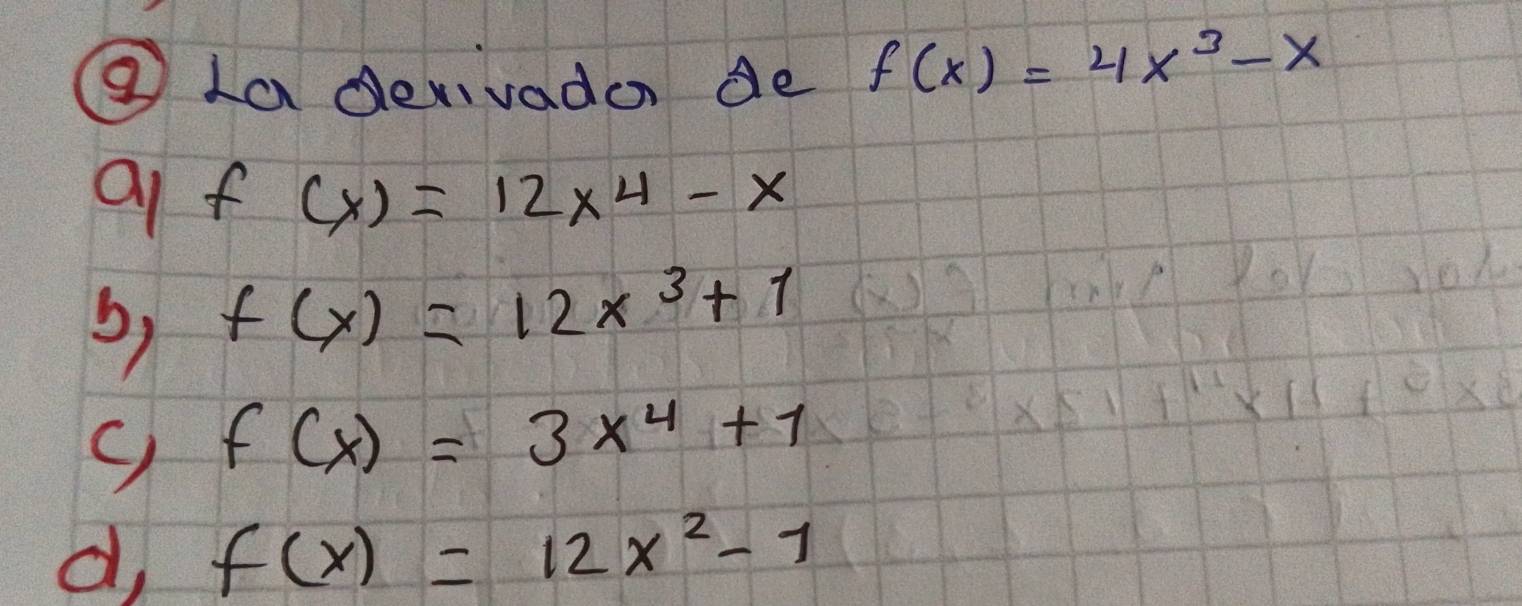 ② La derivada de f(x) = 4x³ - x
a) f (x) = 12x4 - x
b) f(x) = 12x³ + 1
c) f(x) = 3x⁴ + 1
d) f(x) = 12x² - 1